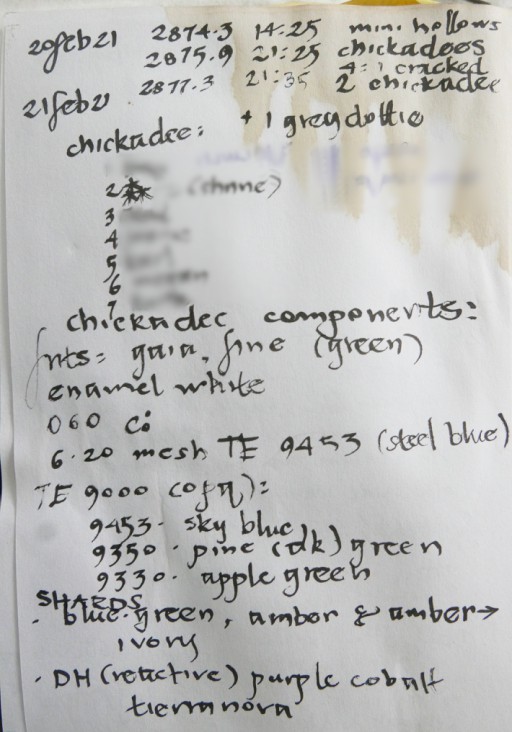 20feb21 2874.3 14:25 mini hollows
2875.9 21:25 chickadees
4: 1 cracked
21feb21 2877.3 21:35 2 chickadee
chickadee: + 1 grey dottie
2
3
4
5
6
7
chickadee components:
frits: gaia, fine (green)
enamel white
060 Ci
6.20 mesh TE 9453 (steel blue)
TE 9000 (ofq):
9453. sky blue
9350. pine (dk) green
9330. apple green
SHARDS
. blue.green, amber & amber→
ivory
. DH (reactive) purple cobalt
tierranova